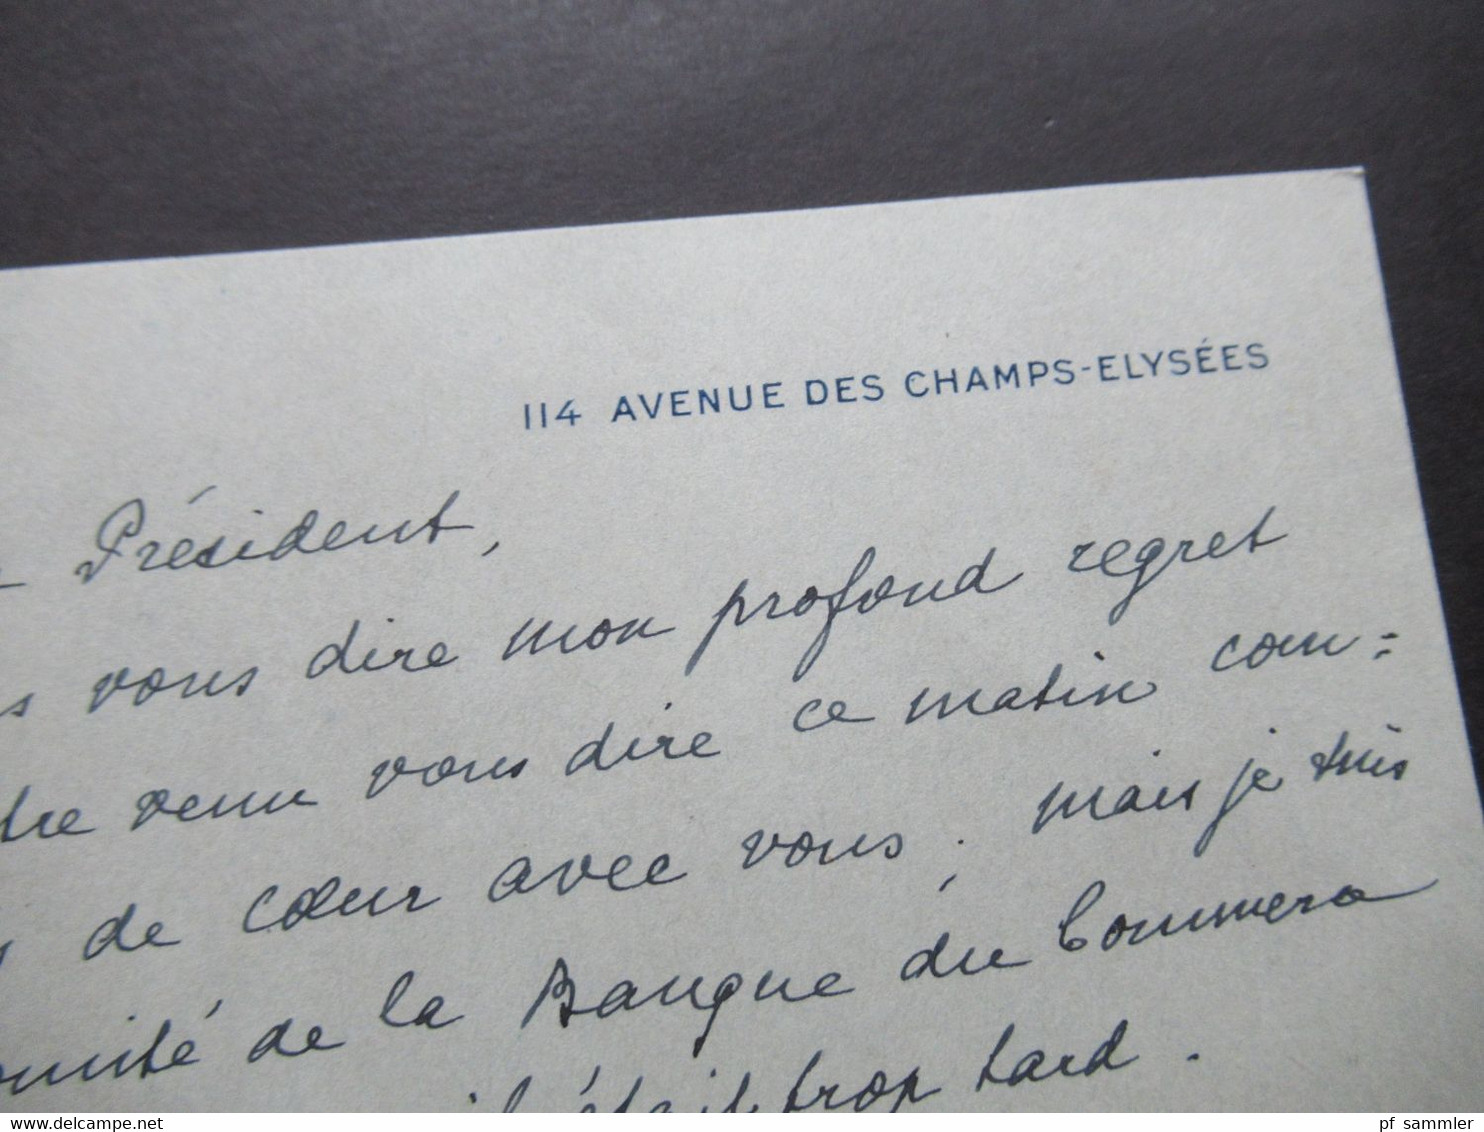 114 AVENUE DES CHAMPS-ELYSÉES
Président,
vous dire mon profond regret
venu vous dire ce matin com=
de cœur avec vous, mais je suis
de la Banque du Commerce
il était trop tard.
www.delcampe.net
pf_sammler